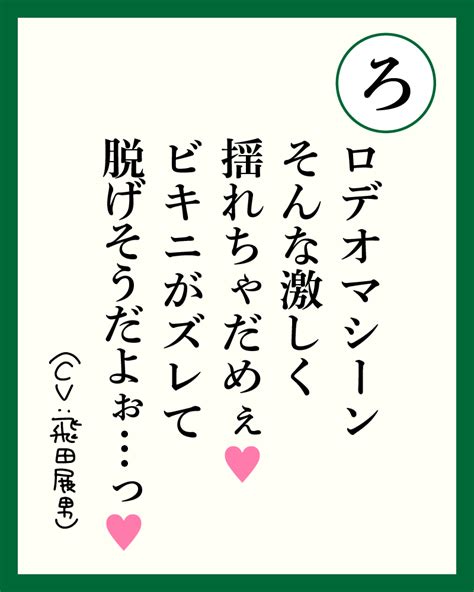 ろ
ロデオマシーン
そんな激しく
揺れちゃだめぇ♥
ビキニがズレて
脱げそうだよぉ…っ♥
(CV:飛田展男)